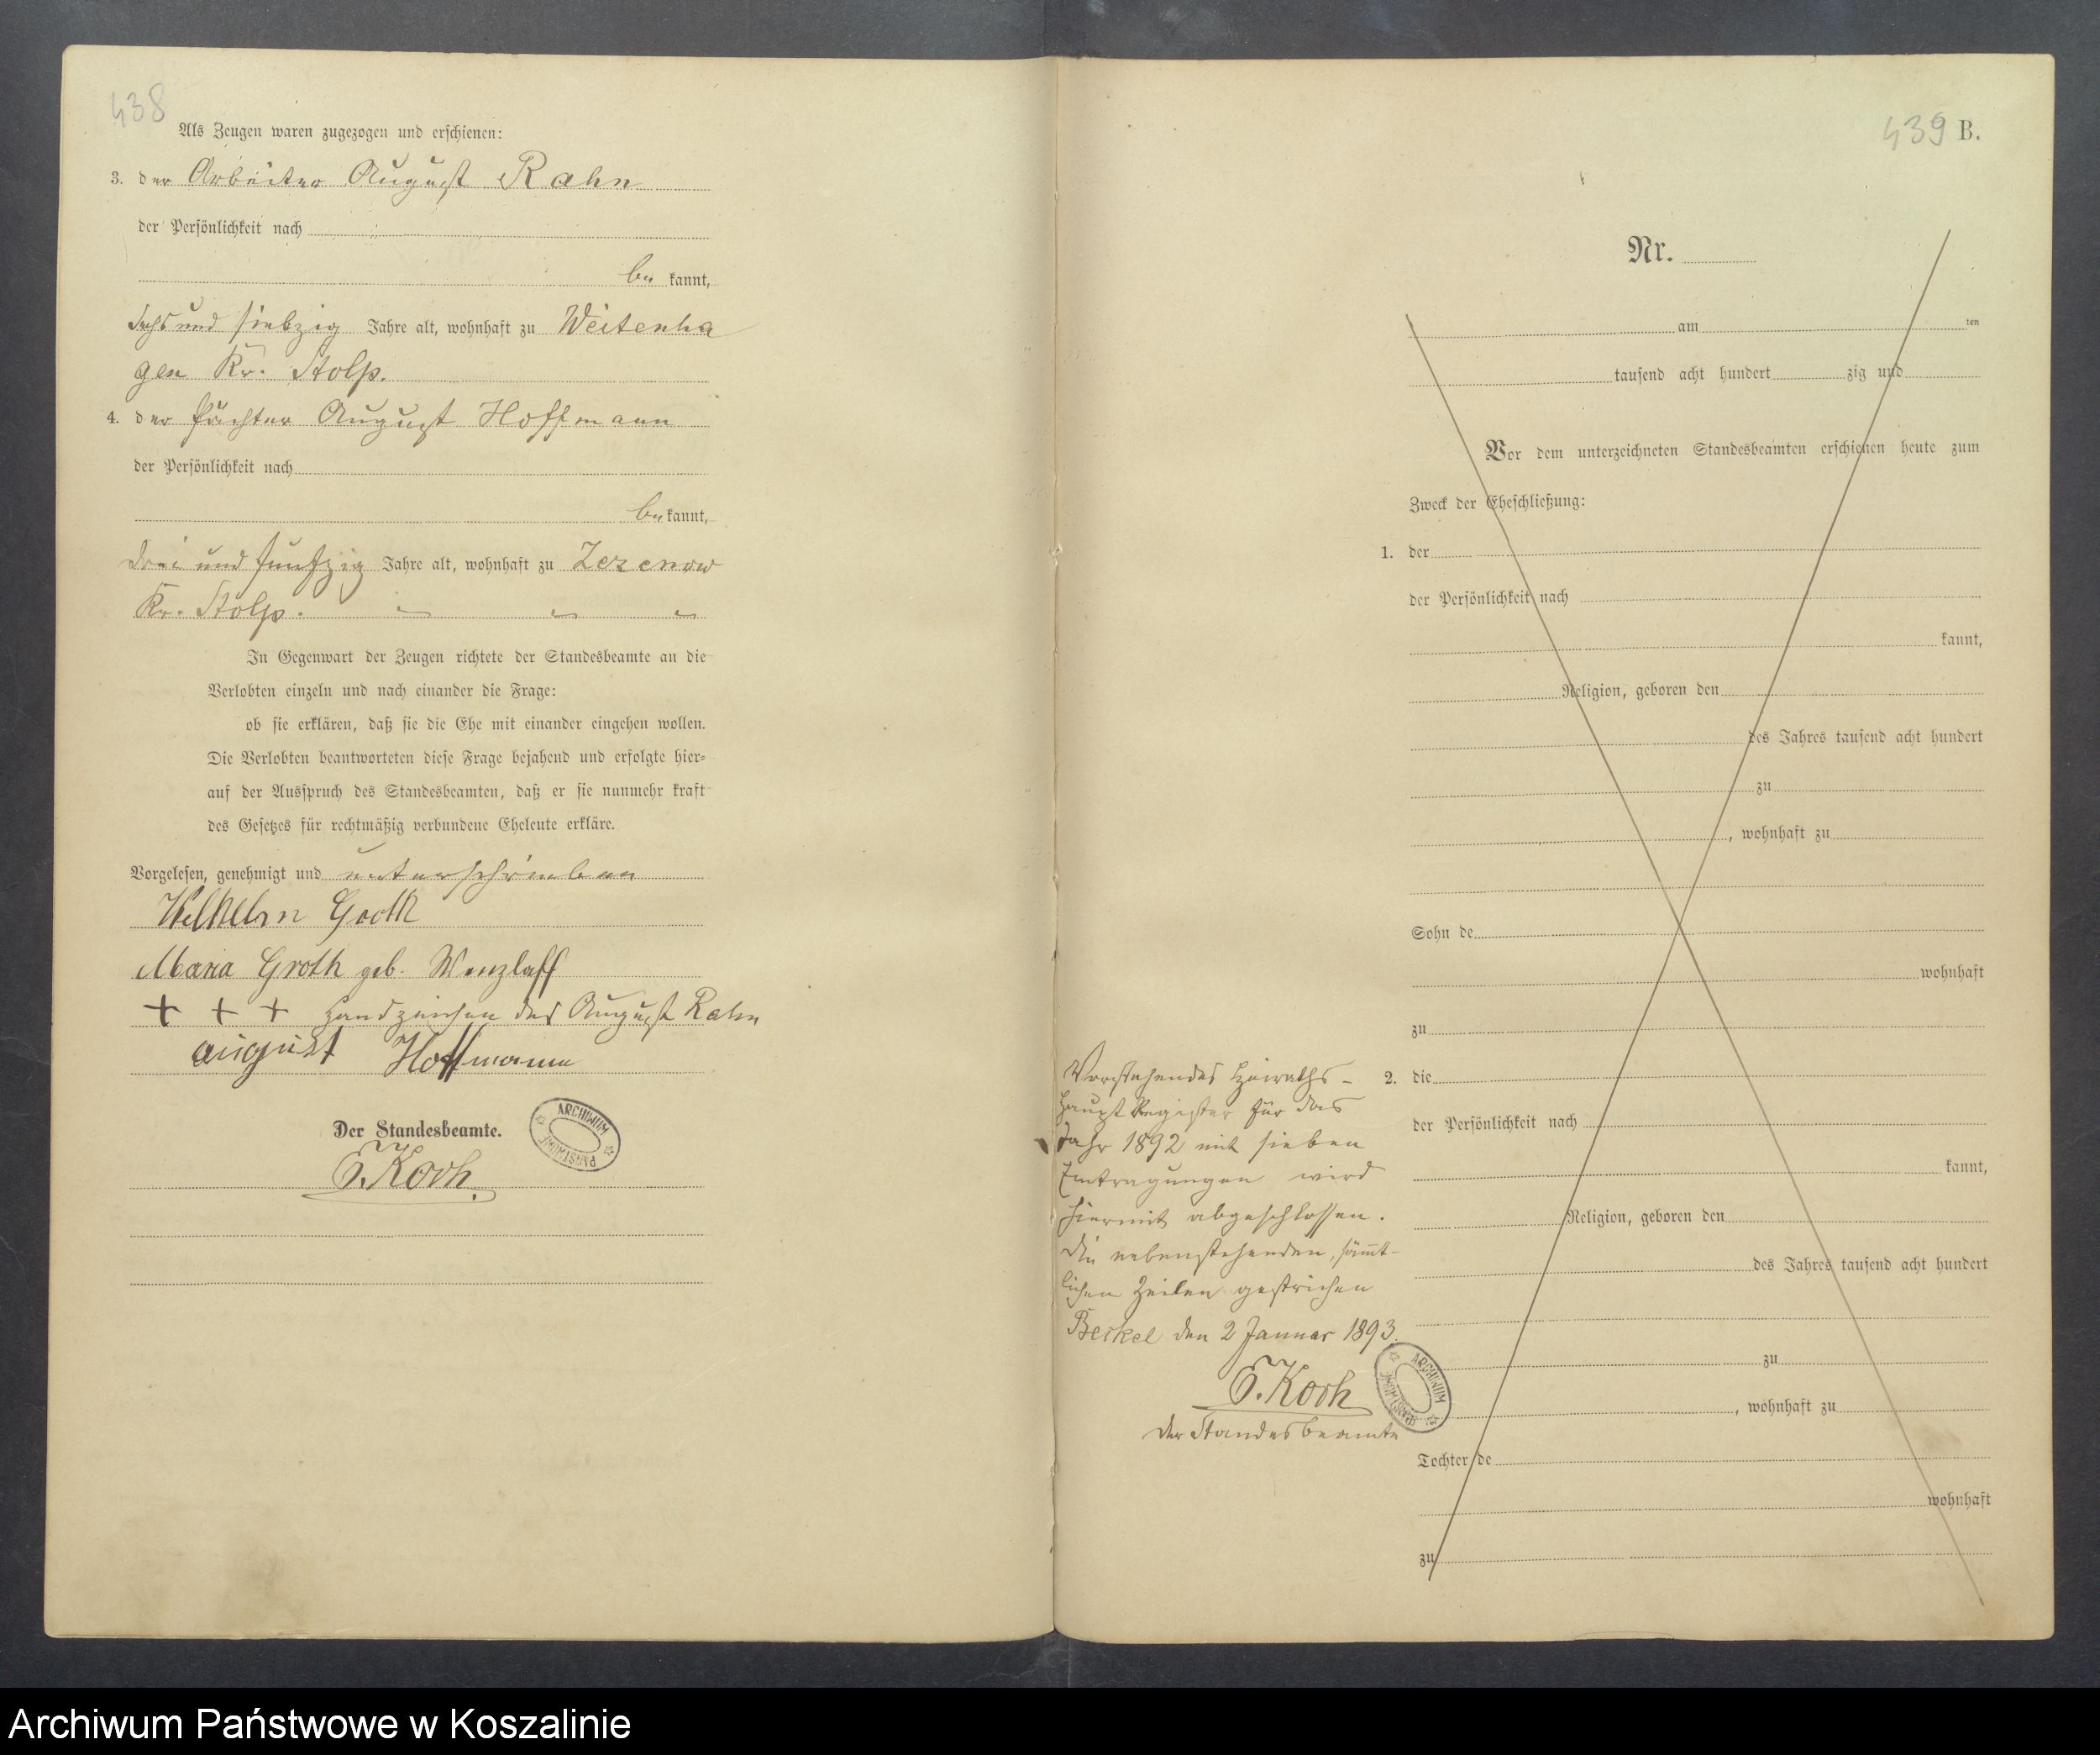 438
Als Zeugen waren zugezogen und erschienen:
3. der Arbeiter August Rahn
der Persönlichkeit nach
be kannt,
sechs und siebzig Jahre alt, wohnhaft zu Weitenha
gen Kr. Stolp.
4. der Pächter August Hoffmann
der Persönlichkeit nach
be kannt,
drei und fünfzig Jahre alt, wohnhaft zu Zezenow
Kr. Stolp.
In Gegenwart der Zeugen richtete der Standesbeamte an die
Verlobten einzeln und nach einander die Frage:
ob sie erklären, daß sie die Ehe mit einander eingehen wollen.
Die Verlobten beantworteten diese Frage bejahend und erfolgte hier-
auf der Ausspruch des Standesbeamten, daß er sie nunmehr kraft
des Gesetzes für rechtmäßig verbundene Eheleute erkläre.
Vorgelesen, genehmigt und unterschrieben
Wilhelm Groth
Maria Groth geb. Wenzlaff
+ + + Handzeichen des August Rahn
august Hoffmann
Der Standesbeamte.
ARCHIWUM PAŃSTWOWE
E. Koch.
439 B.
Nr.
am ten
tausend acht hundert zig und
Vor dem unterzeichneten Standesbeamten erschienen heute zum
Zweck der Eheschließung:
1. der
der Persönlichkeit nach
kannt,
Religion, geboren den
des Jahres tausend acht hundert
zu
, wohnhaft zu
Sohn de
wohnhaft
zu
2. die
der Persönlichkeit nach
kannt,
Religion, geboren den
des Jahres tausend acht hundert
zu
, wohnhaft zu
Tochter de
wohnhaft
zu
Vorstehendes Heiraths-
Haupt Register für das
Jahr 1892 mit sieben
Eintragungen wird
hiermit abgeschlossen.
Die nebenstehenden, sämmt-
lichen Zeilen gestrichen
den 2 Januar 1893.
E. Koch
ARCHIWUM PAŃSTWOWE
der Standesbeamte
Archiwum Państwowe w Koszalinie